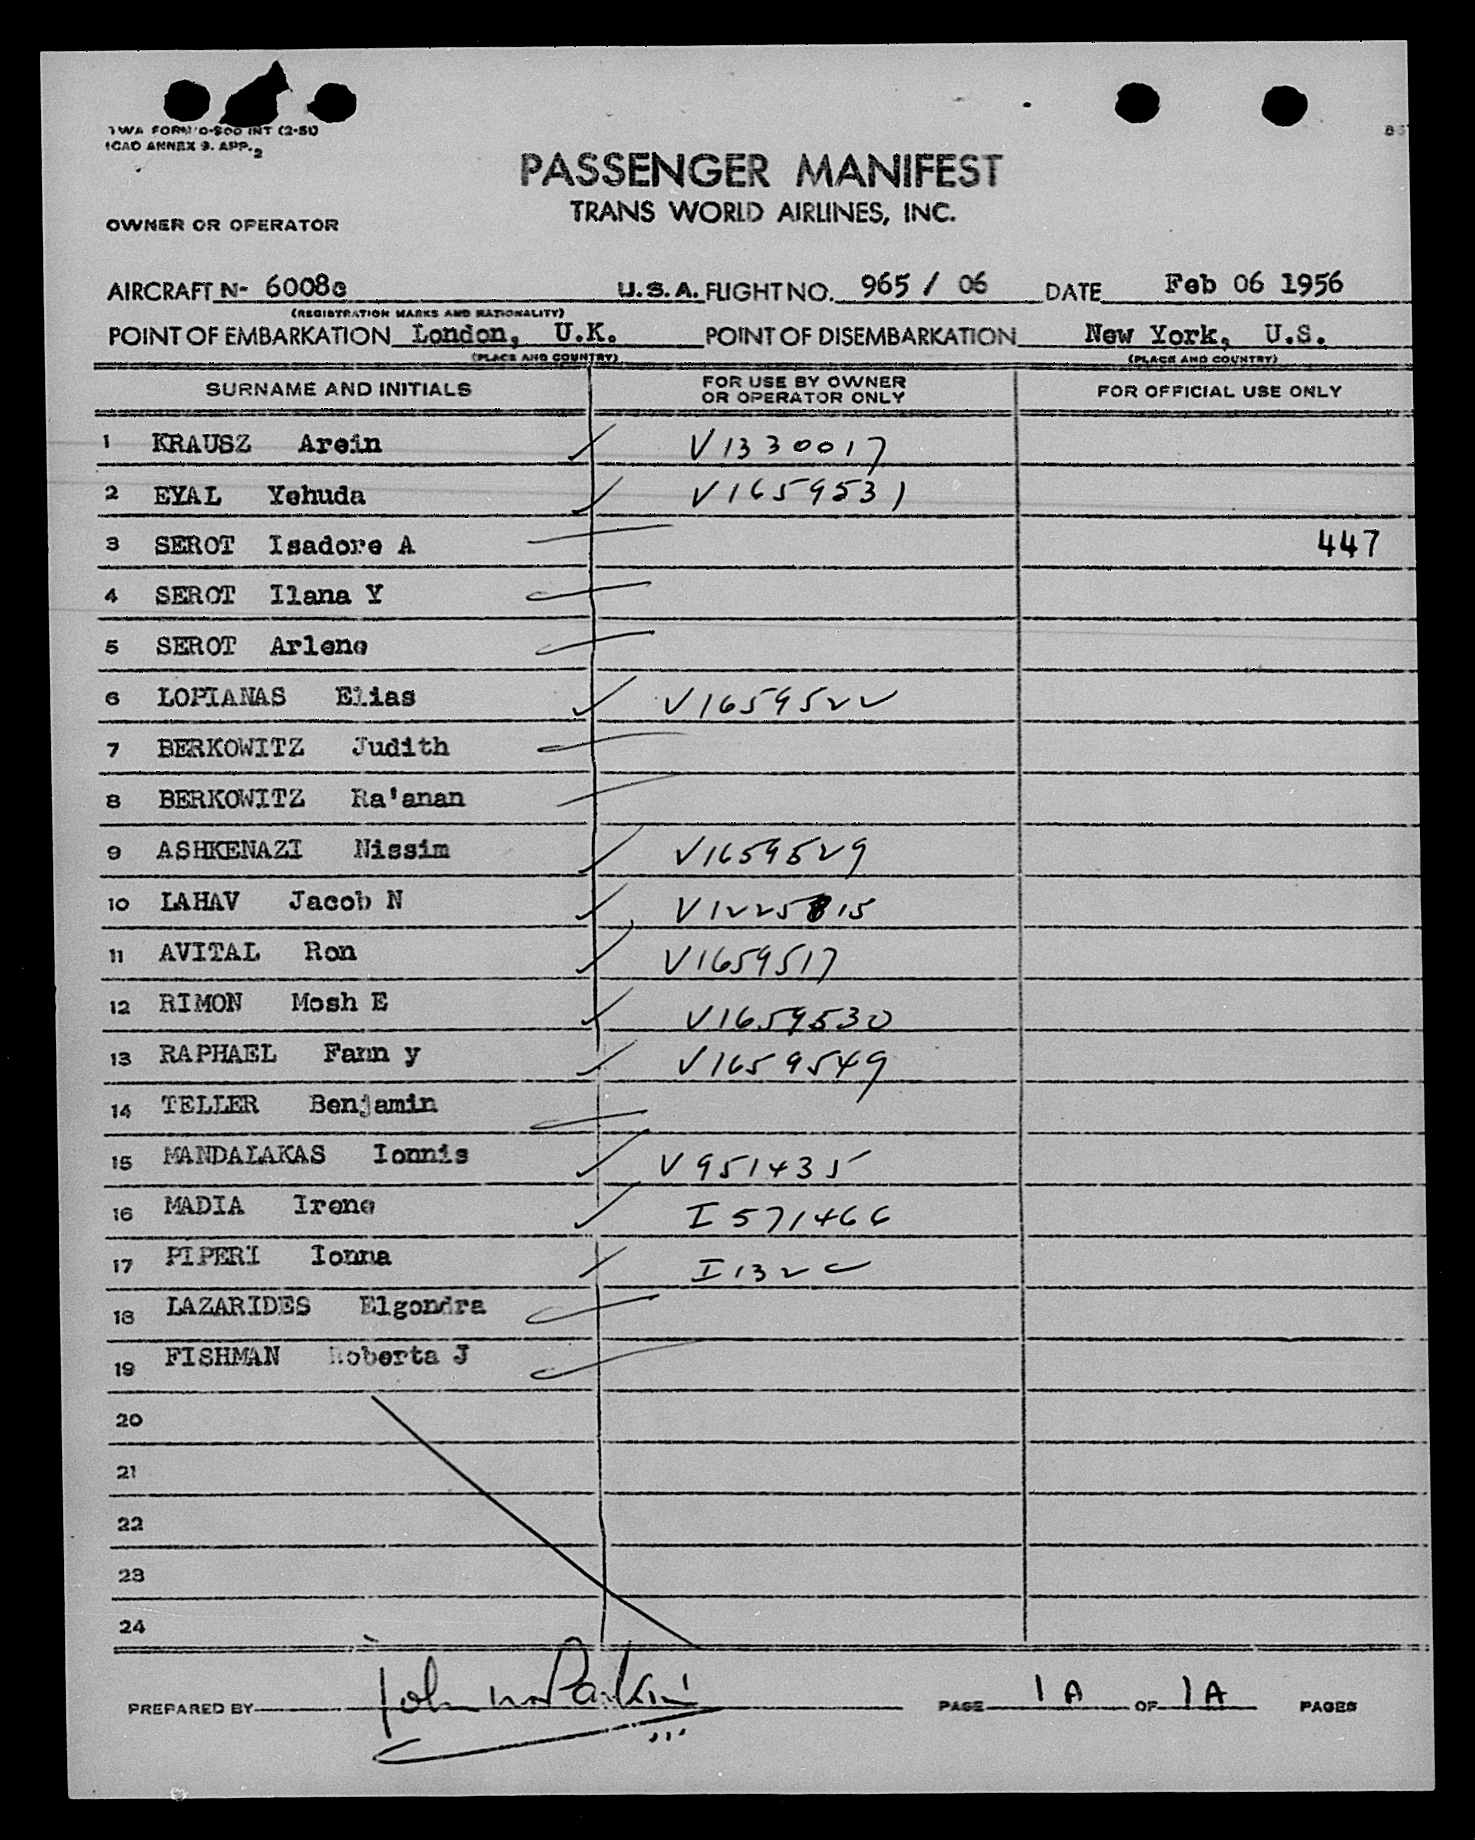 TWA FORM O-800 INT (2-51)
ICAO ANNEX 9. APP. 2
PASSENGER MANIFEST
TRANS WORLD AIRLINES, INC.
OWNER OR OPERATOR
AIRCRAFT N- 6008C U.S.A. FLIGHT NO. 965 / 06 DATE Feb 06 1956
(REGISTRATION MARKS AND NATIONALITY)
POINT OF EMBARKATION London, U.K. POINT OF DISEMBARKATION New York, U.S.
(PLACE AND COUNTRY) (PLACE AND COUNTRY)
SURNAME AND INITIALS FOR USE BY OWNER OR OPERATOR ONLY FOR OFFICIAL USE ONLY
1 KRAUSZ Arein V1330017
2 EYAL Yehuda V1659531
3 SEROT Isadore A 447
4 SEROT Ilana Y
5 SEROT Arlene
6 LOPIANAS Elias V1659522
7 BERKOWITZ Judith
8 BERKOWITZ Ra'anan
9 ASHKENAZI Nissim V1659529
10 LAHAV Jacob N V1225815
11 AVITAL Ron V1659517
12 RIMON Mosh E V1659530
13 RAPHAEL Fann y V1659549
14 TELLER Benjamin
15 MANDALAKAS Ionnis V951435
16 MADIA Irene I571466
17 PIPERI Ionna I132
18 LAZARIDES Elgondra
19 FISHMAN Roberta J
20
21
22
23
24
PREPARED BY John PAGE 1A OF 1A PAGES